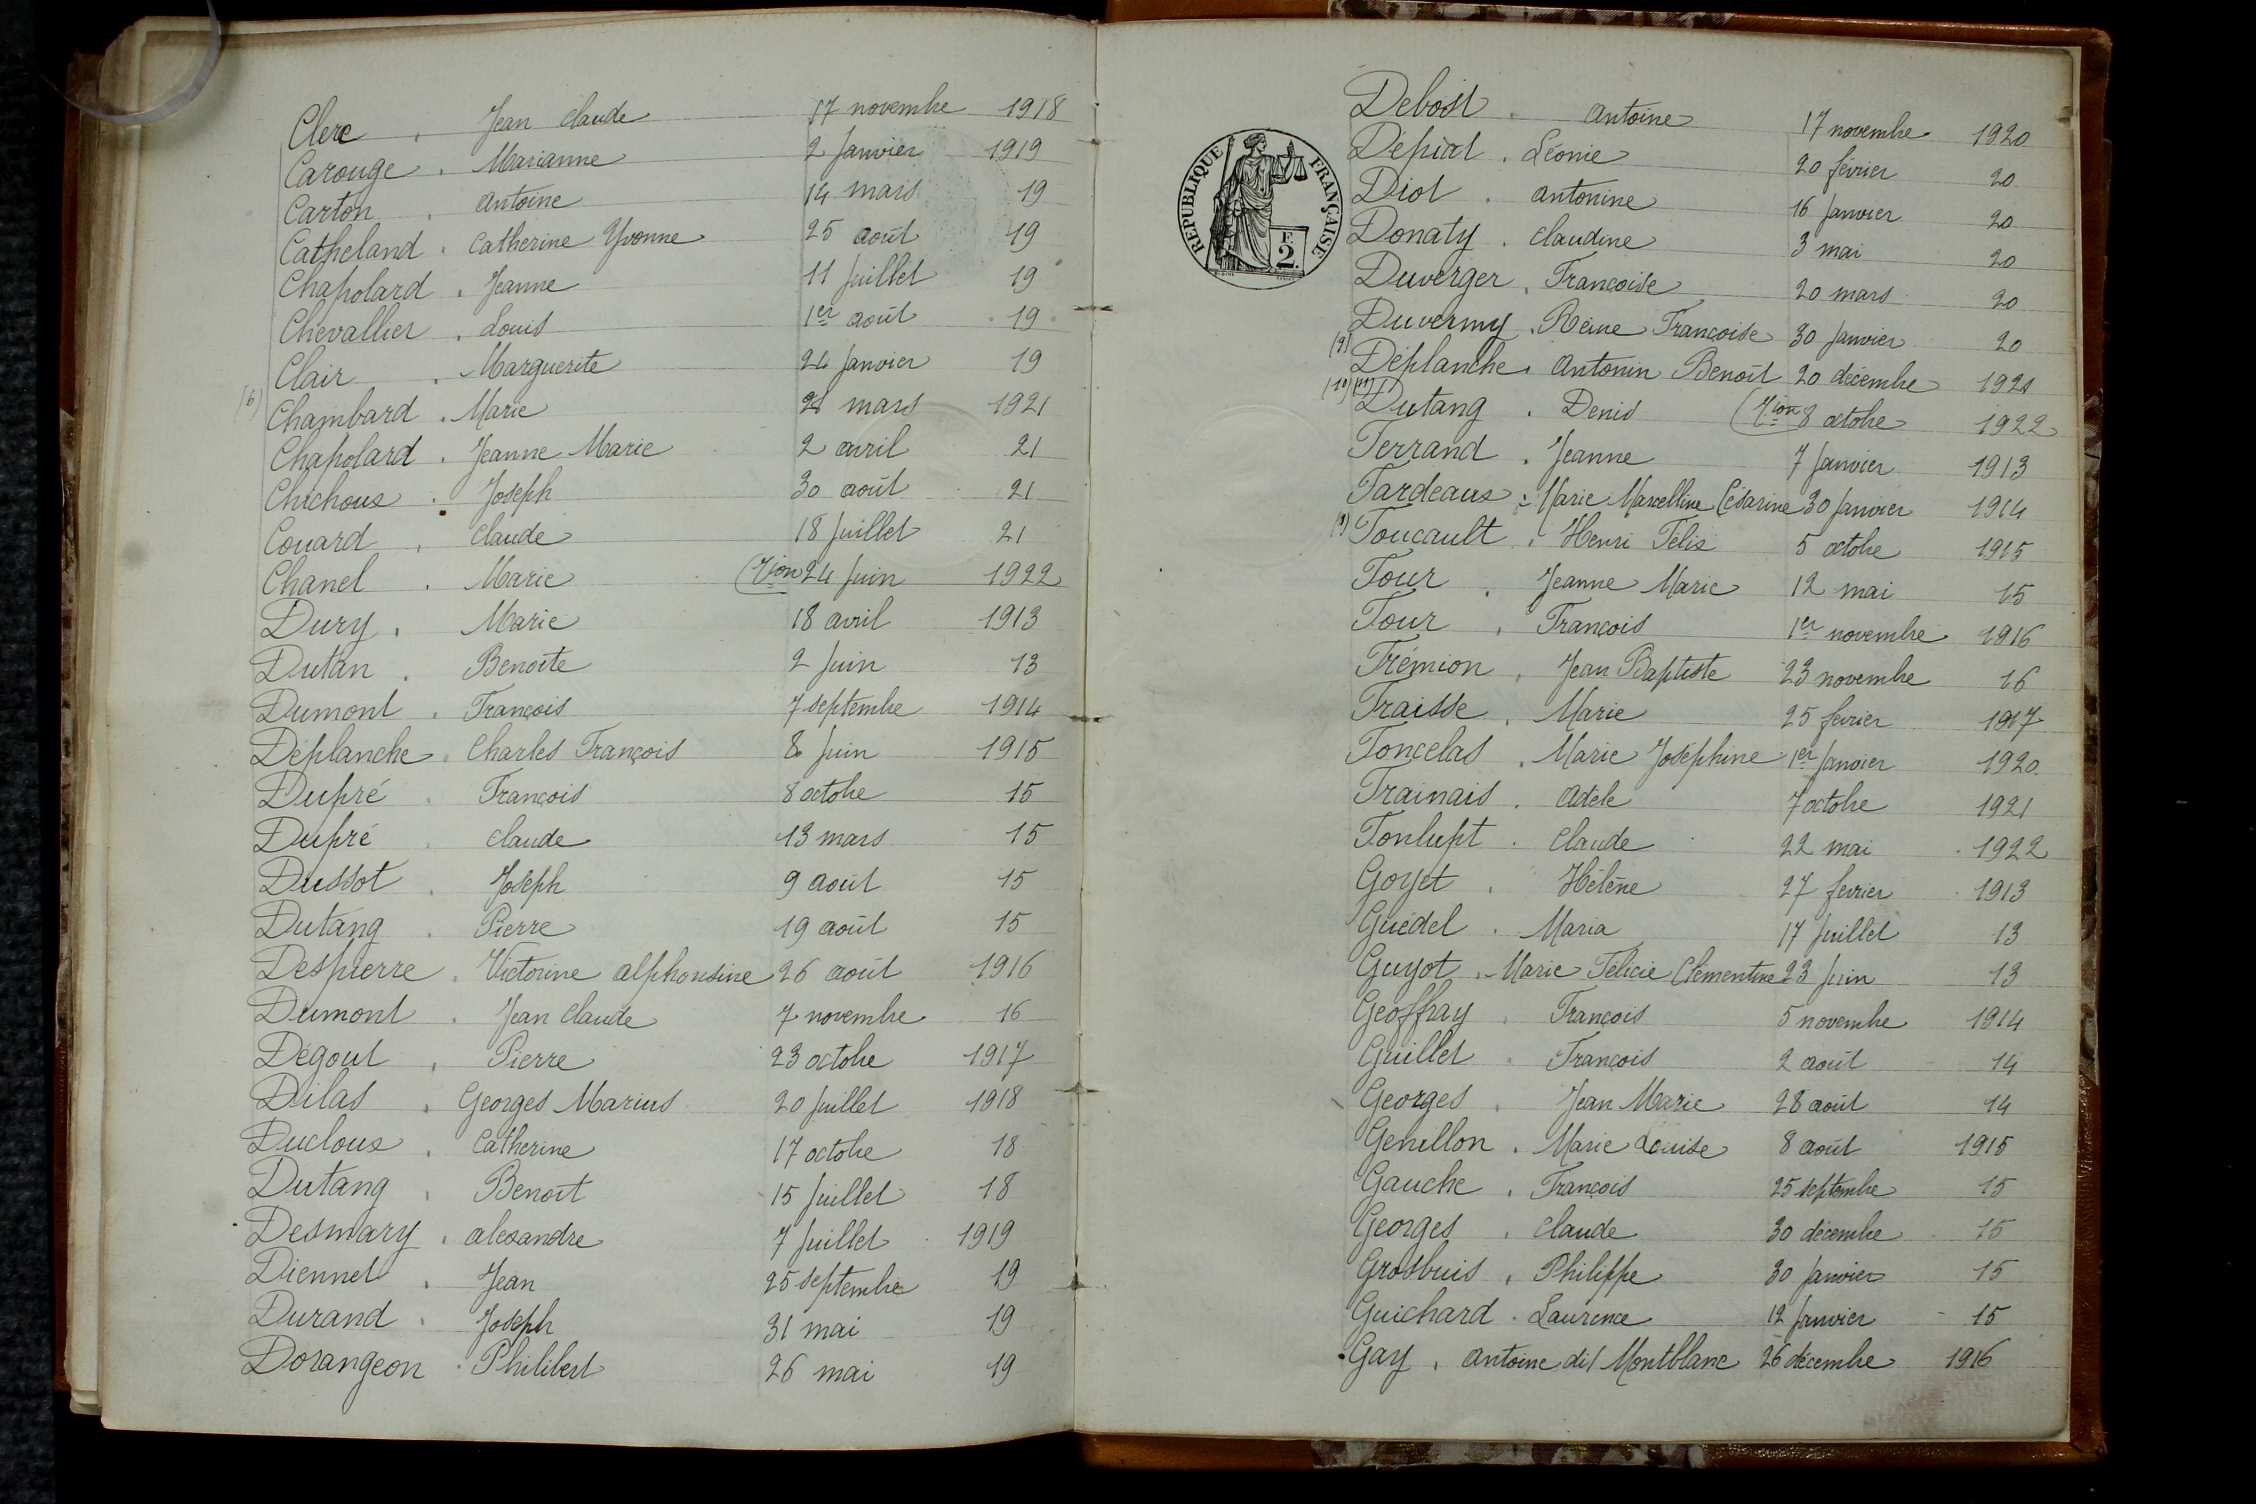 Clerc . Jean Claude 17 novembre 1918
Carouge . Marianne 2 Janvier 1919
Carton . Antoine 14 mars 19
Catheland . Catherine Yvonne 25 août 19
Chapolard . Jeanne 11 Juillet 19
Chevallier . Louis 1er août 19
Clair . Marguerite 24 Janvier 19
(6) Chambard . Marie mars 1921
Chapolard . Jeanne Marie 2 avril 21
Chichoux . Joseph 30 août 21
Couard . Claude 18 Juillet 21
Chanel . Marie 24 Juin 1922
Dury . Marie 18 avril 1913
Dutan . Benoîte 2 Juin 13
Dumont . François 7 septembre 1914
Déplanche . Charles François 8 Juin 1915
Dupré . François 8 octobre 15
Dupré . Claude 13 mars 15
Dussot . Joseph 9 août 15
Dutang . Pierre 19 août 15
Despierre . Victorine Alphonsine 26 août 1916
Dumont . Jean Claude 7 novembre 16
Dégout . Pierre 23 octobre 1917
Dilas . Georges Marius 20 Juillet 1918
Ducloux . Catherine 17 octobre 18
Dutang . Benoît 15 Juillet 18
Desmary . Alexandre 7 Juillet 1919
Diennet . Jean 25 septembre 19
Durand . Joseph 31 mai 19
Dorangeon . Philibert 26 mai 19
RÉPUBLIQUE FRANÇAISE
F.
2.
Debost . Antoine 17 novembre 1920
Dépiat . Léonie 20 février 20
Diot . Antonine 16 Janvier 20
Donaty . Claudine 3 mai 20
Duverger . Françoise 20 mars 20
Duvermy . Reine Françoise 30 Janvier 20
Déplanche . Antonin Benoît 20 décembre 1921
Dutang . Denis 8 octobre 1922
Ferrand . Jeanne 7 Janvier 1913
Fardeaux . Marie Marcelline Césarine 30 Janvier 1914
Foucault . Henri Félix 5 octobre 1915
Four . Jeanne Marie 12 mai 15
Four . François 1er novembre 1916
Frémion . Jean Baptiste 23 novembre 16
Fraisse . Marie 25 février 1917
Foncelas . Marie Joséphine 1er Janvier 1920
Frainais . Adèle 7 octobre 1921
Fonlupt . Claude 22 mai 1922
Goyet . Hélène 27 février 1913
Guédel . Maria 17 Juillet 13
Guyot . Marie Félicie Clémentine 23 Juin 13
Geoffray . François 5 novembre 1914
Guillet . François 2 août 14
Georges . Jean Marie 28 août 14
Genillon . Marie Louise 8 août 1915
Gauche . François 25 septembre 15
Georges . Claude 30 décembre 15
Grosbuis . Philippe 30 Janvier 15
Guichard . Laurence 12 Janvier 15
Gay . Antoine dit Montblanc 26 décembre 1916